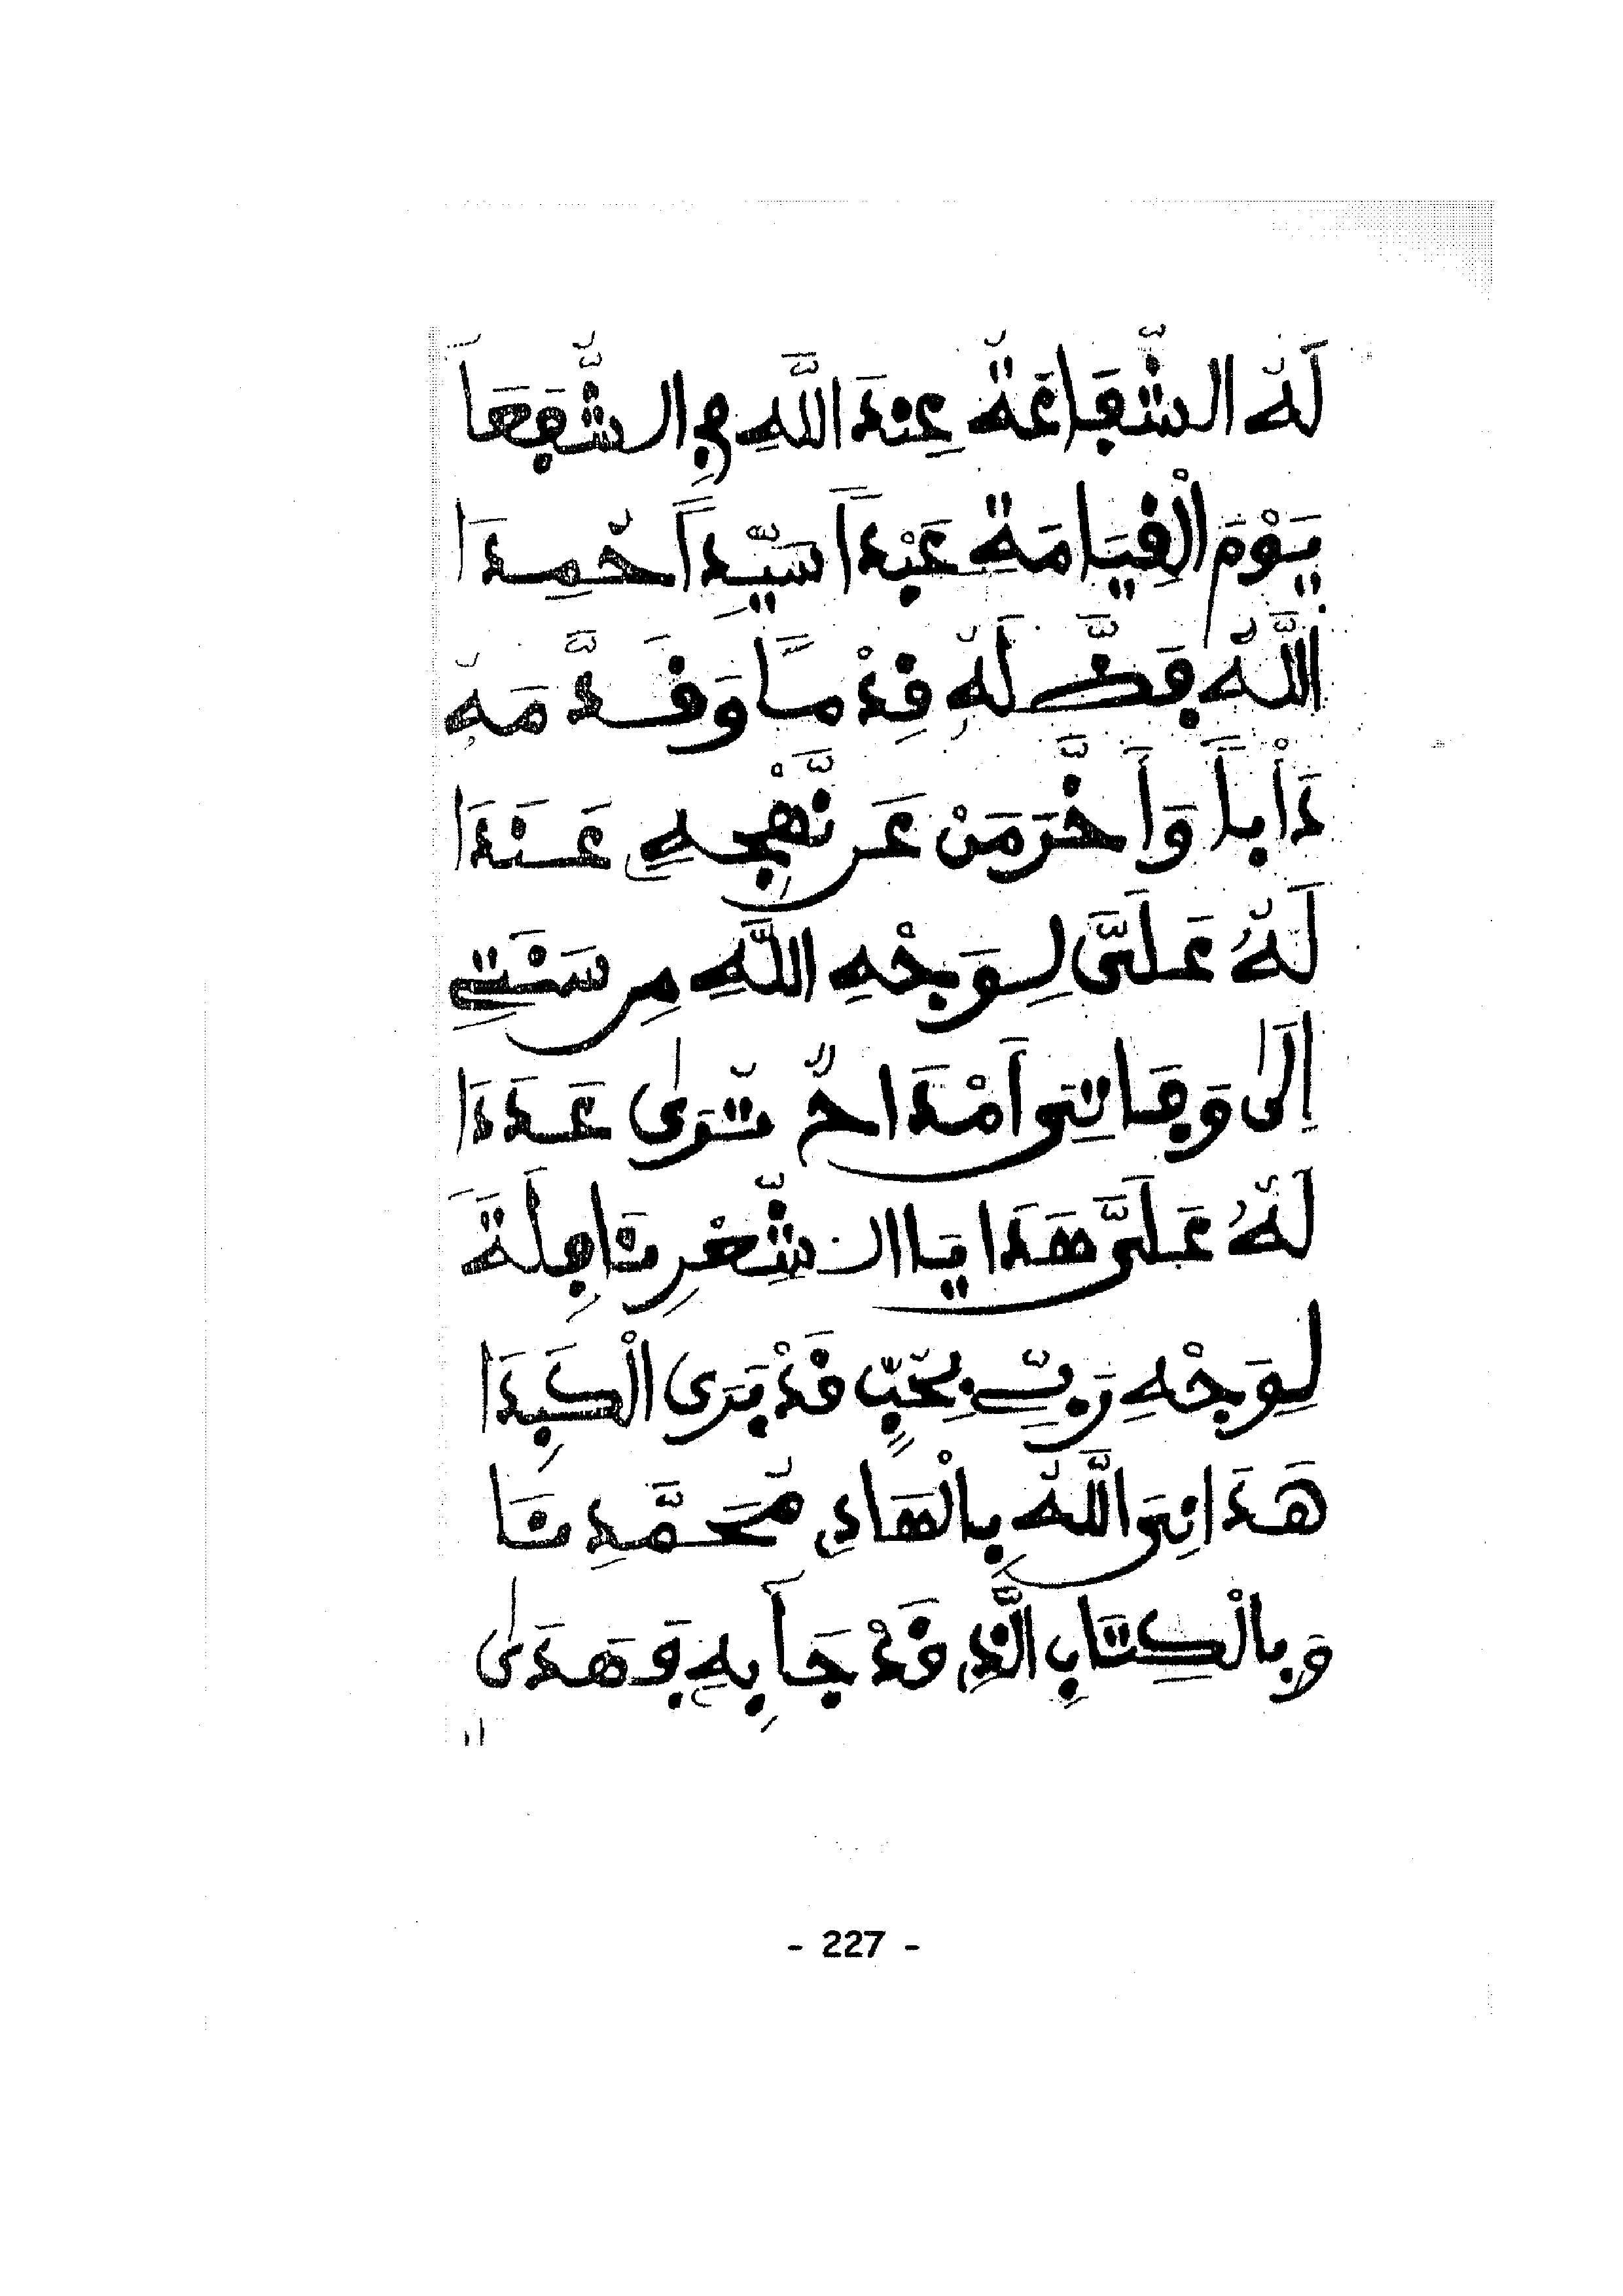 لَهُ الشَّفَاعَةُ عِنْدَ اللَّهِ فِي الشُّفَعَا
يَوْمَ الْقِيَامَةِ عَبْداً سَيِّداً حُمِدَا
اللَّهُ فَضَّلَهُ قِدْماً وَقَدَّمَهُ
دَأْباً وَأَخَّرَ مَنْ عَن نَّهْجِهِ عَنَدَا
لَهُ عَلَىَّ لِوَجْهِ اللَّهِ مِن سَنَتِي
إِلَى وَفَاتِيَ أَمْدَاحٌ تُرَى عَدَدَا
لَهُ عَلَىَّ هَدَايَا الشِّعْرِ نَافِلَةً
لِوَجْهِ رَبِّي بِحُبٍّ قَدْ بَرَى الْكَبِدَا
هَدَانِيَ اللَّهُ بِالْهَادِ مُحَمَّدِنَا
وَبِالْكِتَابِ الَّذِ قَدْ جَا بِهِ فَهَدَى
- 227 -